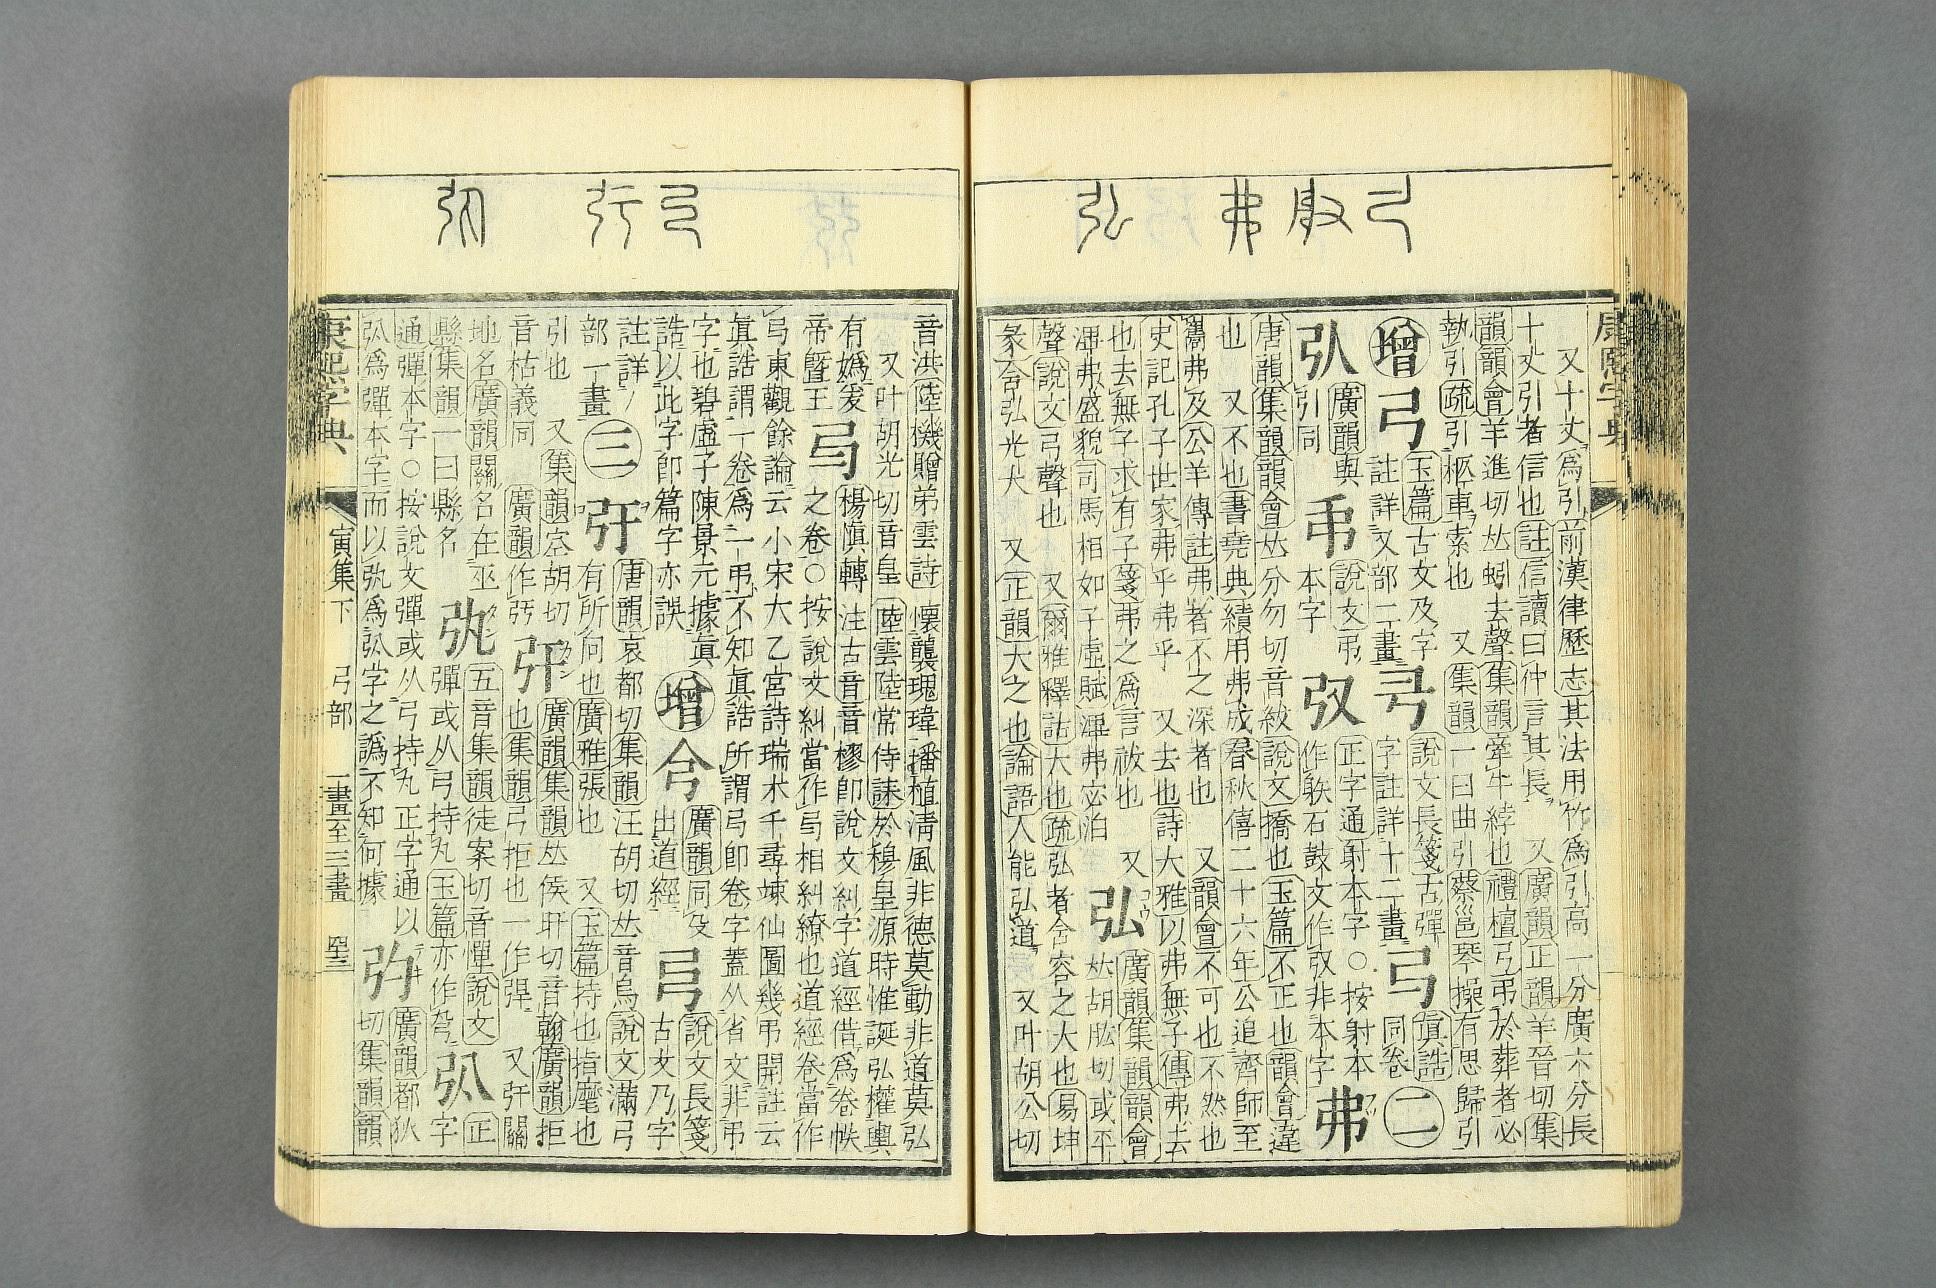 又十丈爲引前漢律歷志其法用竹爲引高一分廣六分長
十丈引者信也註信讀曰伸言其長 又廣韻正韻羊晉切集
韻韻會羊進切𠀤蚓去聲集韻牽牛綍也禮檀弓弔於葬者必
執引疏引柩車索也 又集韻一曰曲引蔡邕琴操有思歸引
增 弓 玉篇古文及字
註詳又部二畫
說文長箋古彈
字註詳十二畫
弓 眞誥
同卷
二
弞 廣韻與
引同
說文弔
本字
正字通射本字○按射本
作䠶石鼓文作㢩非本字
弗
唐韻集韻韻會𠀤分勿切音紱說文撟也玉篇不正也韻會違
也 又不也書堯典績用弗成春秋僖二十六年公追齊師至
巂弗及公羊傳註弗者不之深者也 又韻會不可也不然也
史記孔子世家弗乎弗乎 又去也詩大雅以弗無子傳弗去
也去無子求有子箋弗之爲言祓也 又
滭弗盛貌司馬相如子虛賦滭弗宓汨
弘 廣韻集韻韻會
𠀤胡肱切或平
聲說文弓聲也 又爾雅釋詁大也疏弘者含容之大也易坤
彖含弘光大 又正韻大之也論語人能弘道 又叶胡公切
音洪陸機贈弟雲詩 懷襲瑰瑋播植淸風非德莫動非道莫弘
又叶胡光切音皇 陸雲陸常侍誄於穆皇源時惟誕弘權輿
有嬀爰
帝曁王
楊愼轉注古音音樛卽說文糾字道經借爲卷帙
之卷○按說文糾當作 相糾繚也道經卷當作
弓東觀餘論云小宋太乙宮詩瑞木千尋竦仙圖幾弓開註云
眞誥謂一卷爲一弓不知眞誥所謂弓卽卷字蓋从省文非弔
字也碧虛子陳景元據眞
誥以此字卽篇字亦誤
增 廣韻同及
出道經
說文長箋
古文乃字
註詳丿
部一畫
三
弙 唐韻哀都切集韻汪胡切𠀤音烏說文滿弓
有所向也廣雅張也 又玉篇持也指麾也
引也 又集韻空胡切
音枯義同 廣韻作
廣韻集韻𠀤侯旰切音翰廣韻拒
也集韻弓拒也一作 又 關
地名廣韻關名在巫
縣集韻一曰縣名
五音集韻徒案切音憚說文
彈或从弓持丸玉篇亦作
正字
通彈本字○按說文彈或从弓持丸正字通以
爲彈本字而以 爲 字之譌不知何據
廣韻都狄
切集韻韻
康熙字典 寅集下 弓部 一畫至三畫